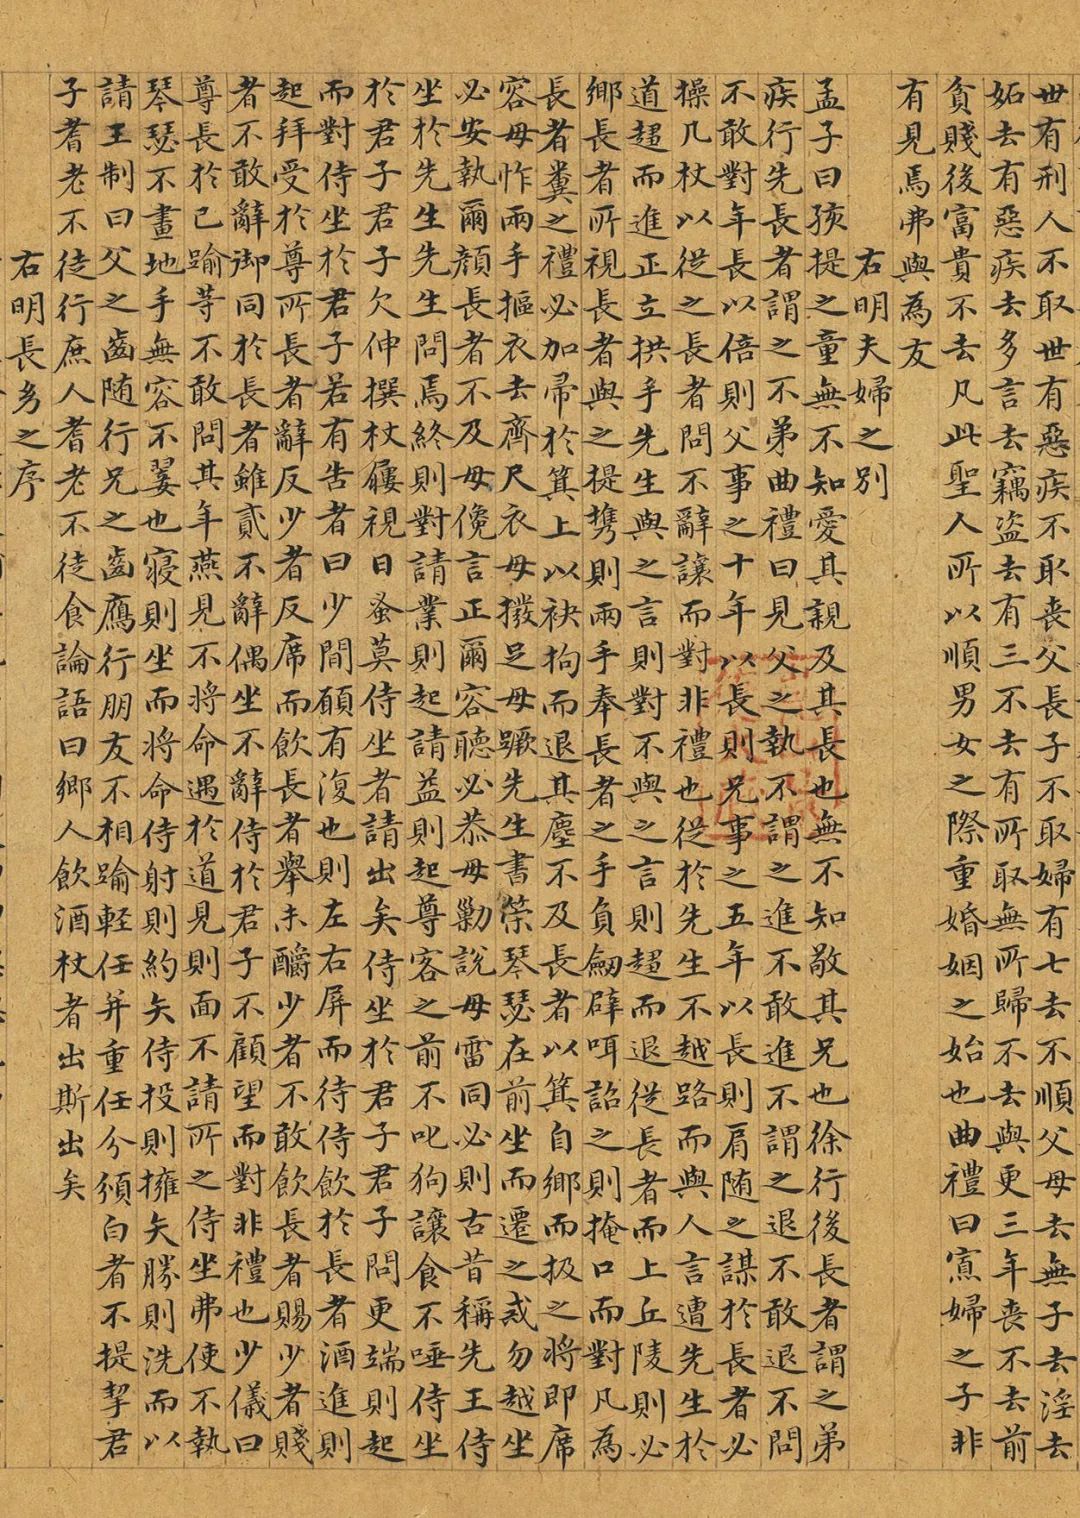 世有刑人不取世有惡疾不取丧父長子不取婦有七去不順父母去無子去淫去
妬去有惡疾去多言去竊盗去有三不去有所取無所歸不去與更三年丧不去前
貧賤後富貴不去凡此聖人所以順男女之際重婚姻之始也曲禮曰寡婦之子非
有見焉弗與為友
右明夫婦之别
孟子曰孩提之童無不知愛其親及其長也無不知敬其兄也徐行後長者謂之弟
疾行先長者謂之不弟曲禮曰見父之執不謂之進不敢進不謂之退不敢退不問
不敢對年長以倍則父事之十年以長則兄事之五年以長則肩随之謀於長者必
操几杖以從之長者問不辭讓而對非禮也從於先生不越路而與人言遭先生於
道趨而進正立拱手先生與之言則對不與之言則趨而退從長者而上丘陵則必
鄉長者所視長者與之提携則兩手奉長者之手負劒辟咡詔之則掩口而對凡為
長者糞之禮必加帚於箕上以袂拘而退其塵不及長者以箕自鄉而扱之将即席
容毋怍兩手摳衣去齊尺衣毋撥足毋蹶先生書策琴瑟在前坐而遷之戒勿越坐
必安執爾顔長者不及毋儳言正爾容聽必恭毋勦說毋雷同必則古昔稱先王侍
坐於先生先生問焉終則對請業則起請益則起尊客之前不叱狗讓食不唾侍坐
於君子君子欠伸撰杖屨視日蚤莫侍坐者請出矣侍坐於君子君子問更端則起
而對侍坐於君子若有告者曰少間願有復也則左右屏而待侍飲於長者酒進則
起拜受於尊所長者辭少者反席而飲長者舉未釂少者不敢飲長者賜少者賤
者不敢辭御同於長者雖貳不辭偶坐不辭侍於君子不顧望而對非禮也少儀曰
尊長於已踰等不敢問其年燕見不将命遇於道見則面不請所之侍坐弗使不執
琴瑟不畫地手無容不翣也寢則坐而将命侍射則約矢侍投則擁矢勝則洗而以
請王制曰父之齒随行兄之齒鴈行朋友不相踰軽任并重任分頒白者不提挈君
子耆老不徒行庶人耆老不徒食論語曰鄉人飲酒杖者出斯出矣
右明長㓜之序